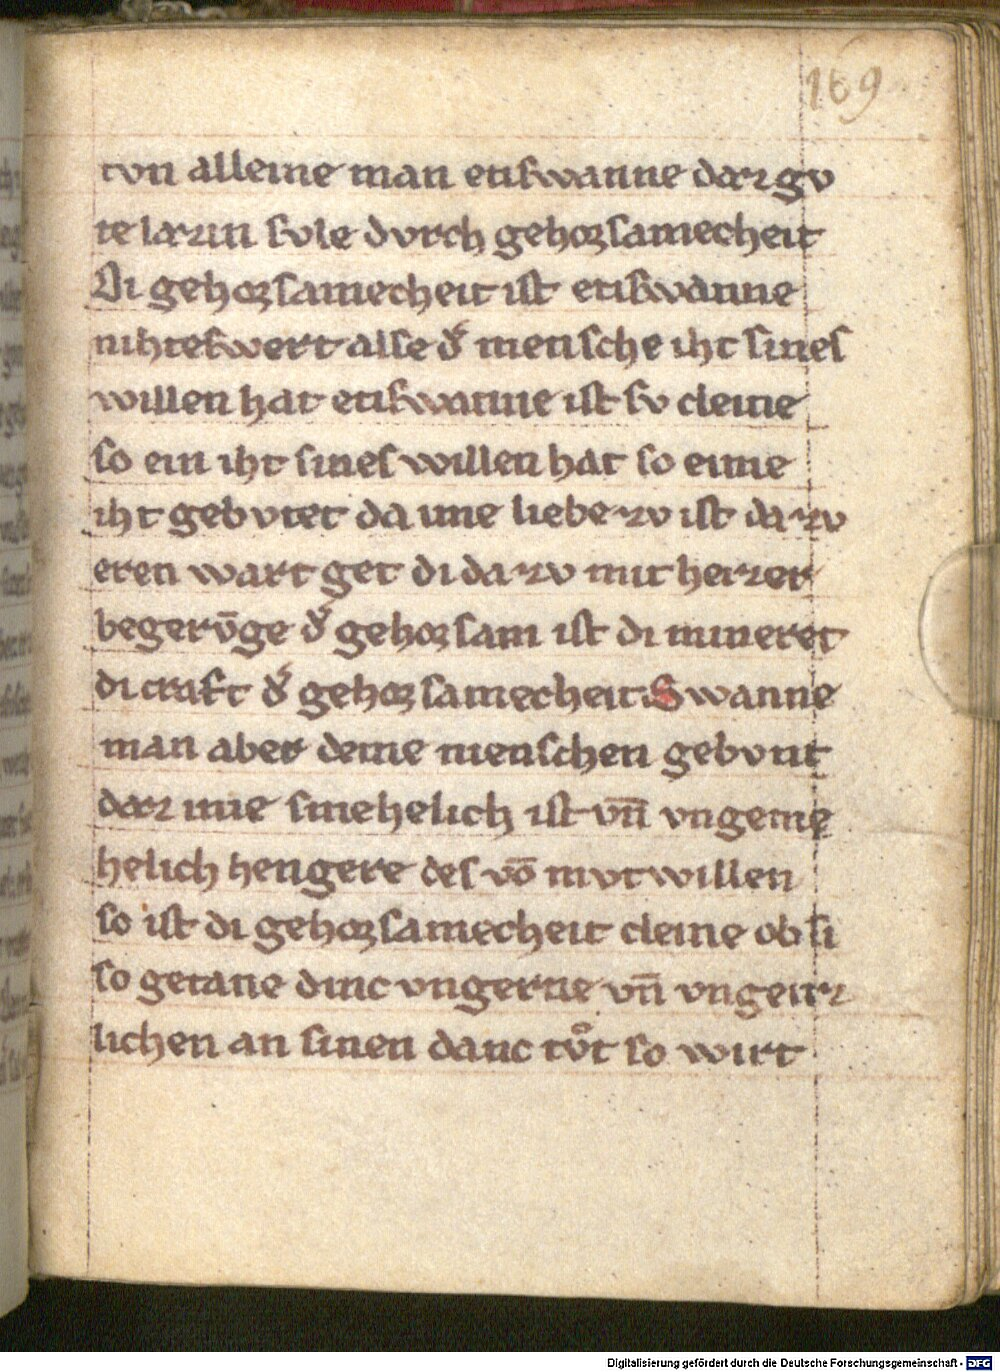 169
tvn alleine man etiswanne daz gv
te lazin svle dvrch gehorsamecheit
Di gehorsamecheit ist etiswanne
nihteswert alse d̾ mensche iht sines
willen hat etiswanne ist sv cleine
so ein iht sines willen hat so eime
iht gebvtet da ime liebe zv ist da zv
eren wart get di da zv mit herzer
begerv̄ge d̾ gehorsam ist di mineret
di craft d̾ gehorsamecheit Swanne
man aber deme menschen gebvtit
daz ime smehelich ist vn̄ vngeme
helich hengere des vō mvtwillen
so ist di gehorsamecheit cleine ob si
so getane dinc vngerne vn̄ vngeitz
lichen an sinen danc tvͦt so wirt
Digitalisierung gefördert durch die Deutsche Forschungsgemeinschaft - DFG